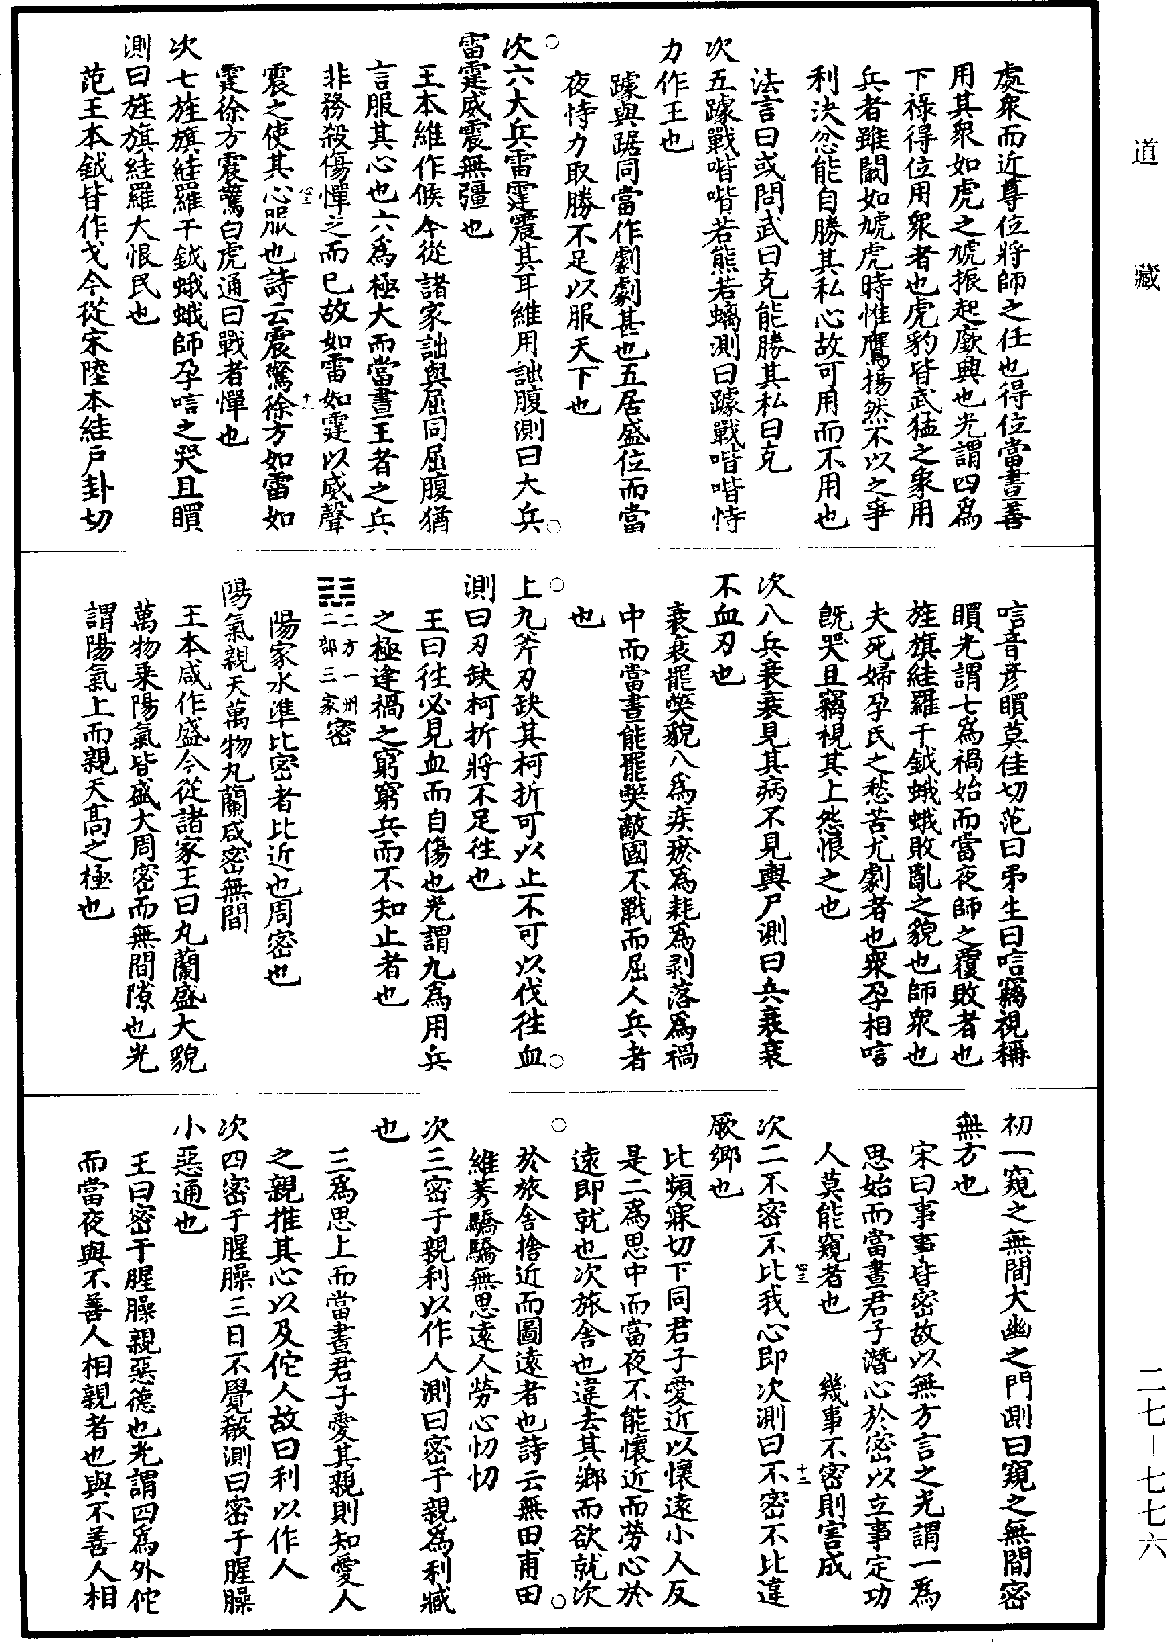 道藏
處衆而近尊位將師之任也得位當晝善
用其衆如虎之虓振起厥興也光謂四爲
下祿得位用衆者也虎豹皆武猛之象用
兵者雖闞如虓虎時惟鷹揚然不以之爭
利決忿能自勝其私心故可用而不用也
法言曰或問武曰克能勝其私曰克
次五躆戰喈喈若熊若螭測曰躆戰喈喈恃
力作王也
躆與踞同當作劇劇甚也五居盛位而當
夜恃力取勝不足以服天下也
次六大兵雷霆震其耳維用詘腹測曰大兵
雷霆威震無彊也
王本維作候今從諸家詘與屈同屈腹猶
言服其心也六爲極大而當晝王者之兵
非務殺傷憚之而已故如雷如霆以威聲
震之使其心服也詩云震驚徐方如雷如
霆徐方震驚白虎通曰戰者憚也
次七旌旗絓羅干鉞蛾蛾師孕唁之哭且瞤
測曰旌旗絓羅大恨民也
范王本鉞皆作戈今從宋陸本絓戶卦切
唁音彥瞤莫佳切范曰弔生曰唁竊視稱
瞤光謂七爲禍始而當夜師之覆敗者也
旌旗絓羅干鉞蛾蛾敗亂之貌也師衆也
夫死婦孕民之愁苦尤劇者也衆孕相唁
旣哭且竊視其上怨恨之也
次八兵衰衰見其病不見輿尸測曰兵衰衰
不血刃也
衰衰罷㢢貌八爲疾瘀爲耗爲剥落爲禍
中而當晝能罷㢢敵國不戰而屈人兵者
也
上九斧刃缺其柯折可以止不可以伐往血
測曰刃缺柯折將不足往也
王曰往必見血而自傷也光謂九爲用兵
之極逢禍之窮窮兵而不知止者也
二方一州二部三家密
陽家水準比密者比近也周密也
陽氣親天萬物丸蘭咸密無間
王本咸作盛今從諸家王曰丸蘭盛大貌
萬物乗陽氣皆盛大周密而無間隙也光
謂陽氣上而親天高之極也
初一窺之無間大幽之門測曰窺之無間密
無方也
宋曰事事皆密故以無方言之光謂一爲
思始而當晝君子潛心於密以立事定功
人莫能窺者也　幾事不密則害成
次二不密不比我心即次測曰不密不比違
厥鄉也
比頻寐切下同君子愛近以懷遠小人反
是二爲思中而當夜不能懷近而勞心於
遠即就也次旅舍也違去其鄉而欲就次
於旅舍捨近而圖遠者也詩云無田甫田
維莠驕驕無思遠人勞心忉忉
次三密于親利以作人測曰密于親爲利臧
也
三爲思上而當晝君子愛其親則知愛人
之親推其心以及佗人故曰利以作人
次四密于腥臊三日不覺殽測曰密于腥臊
小惡通也
王曰密于腥臊親惡德也光謂四爲外佗
而當夜與不善人相親者也與不善人相
二七－七七六